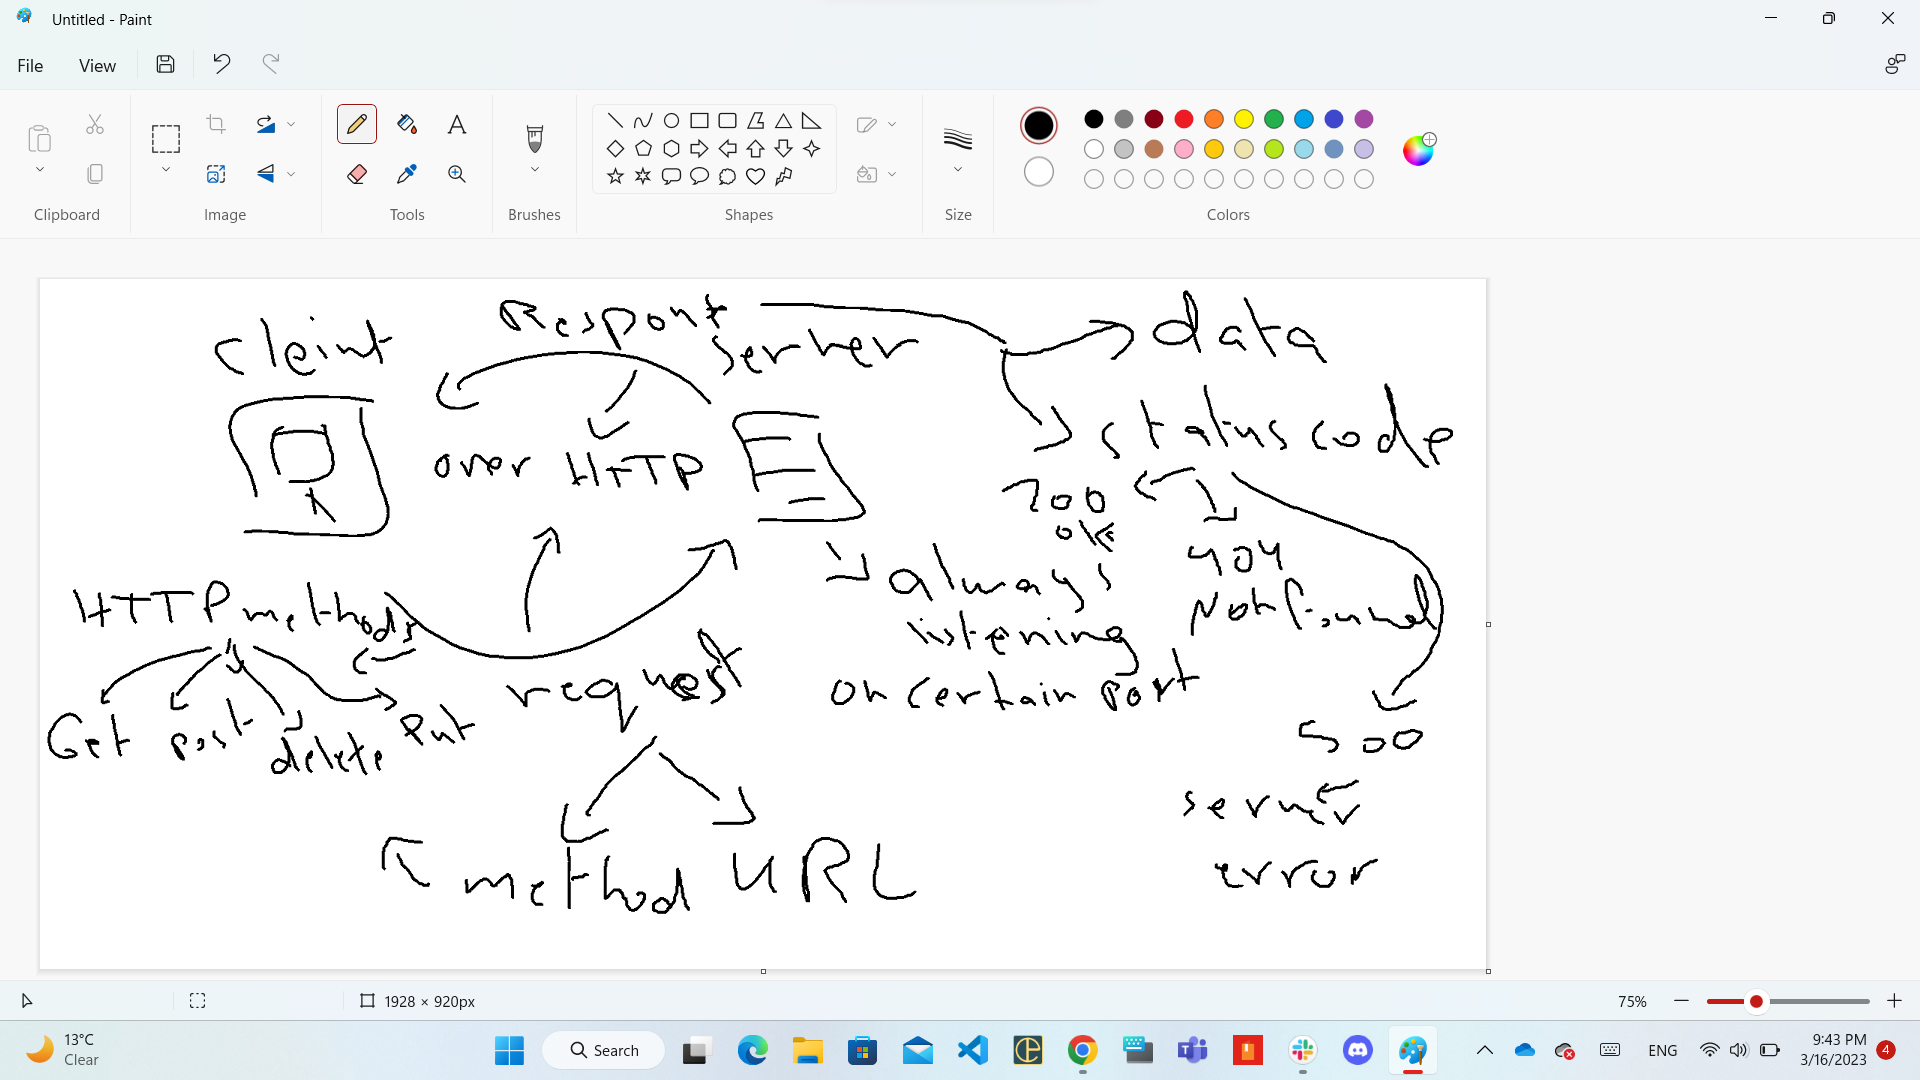 Untitled - Paint
File
View
Clipboard
Image
Tools
Brushes
Shapes
Size
Colors
cleint
Respont
server
data
status code
over HTTP
200
ok
404
Not found
always
listening
on certain port
HTTP methods
request
Get
post
delete
Put
500
server
error
method
URL
1928 × 920px
75%
13°C
Clear
Search
ENG
9:43 PM
3/16/2023
4